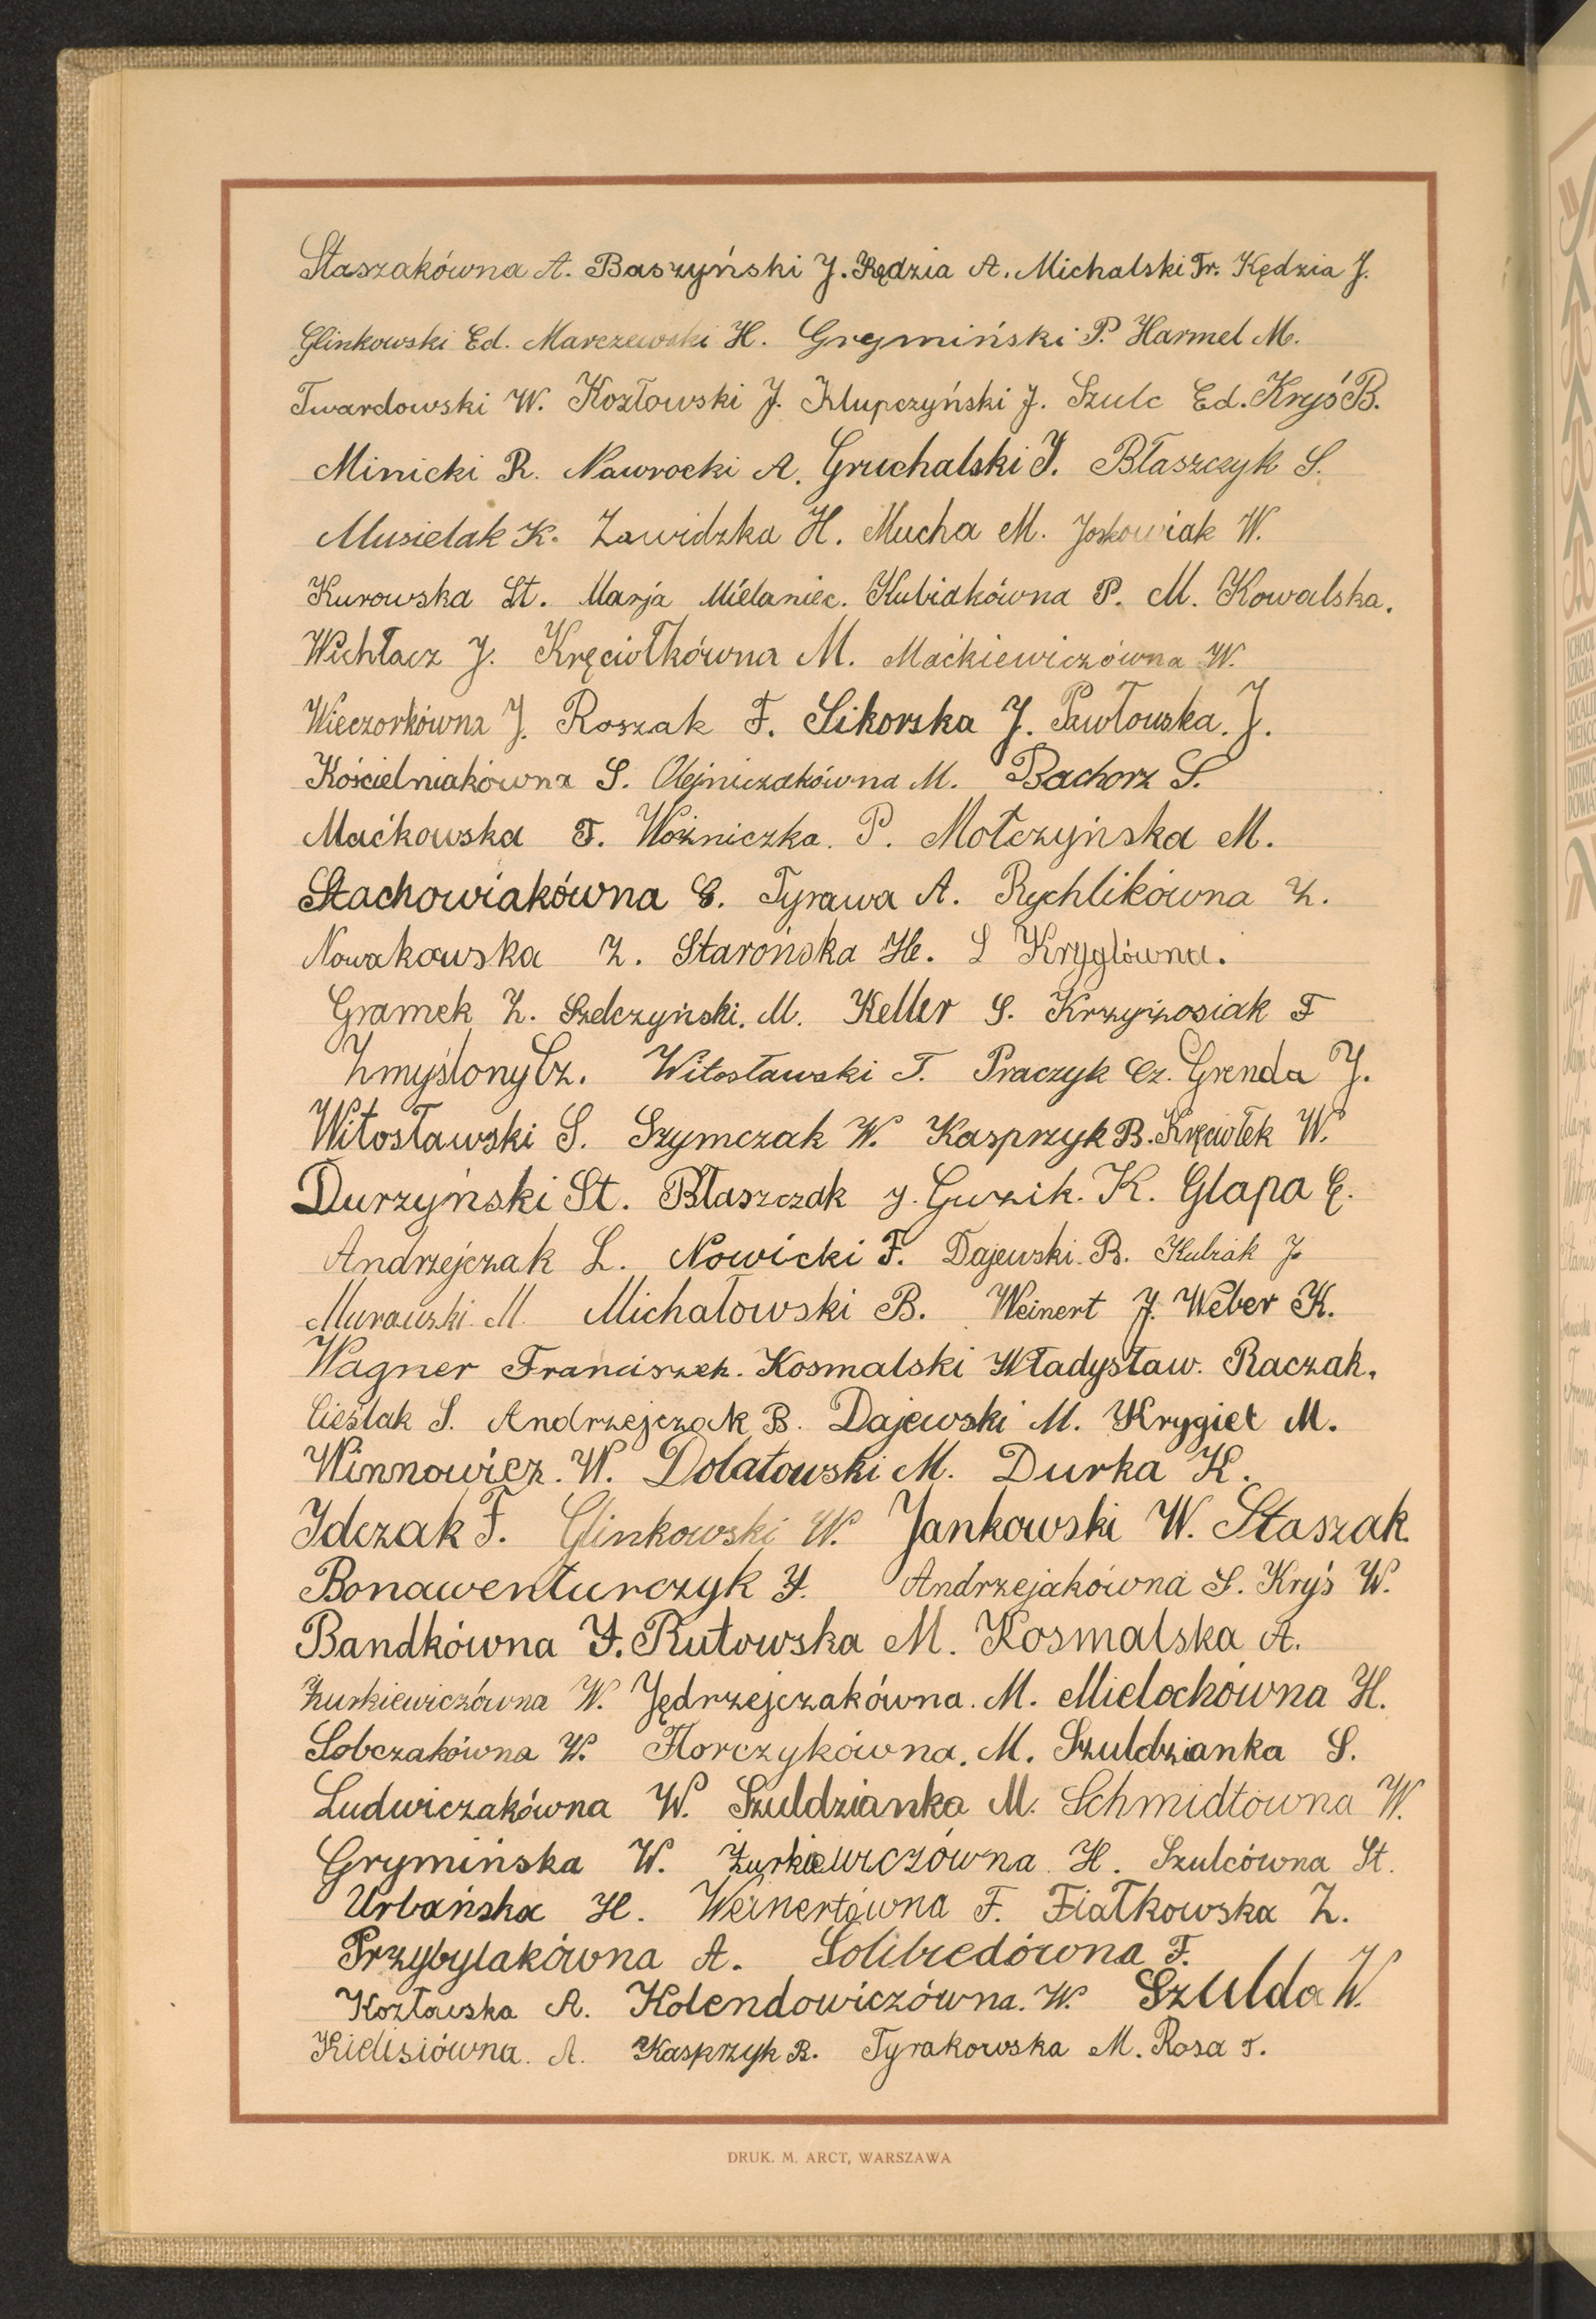 Staszakówna A. Baszyński J. Kędzia A. Michalski Fr. Kędzia J.
Glinkowski Ed. Marczewski H. Grymiński P. Harmel M.
Twardowski W. Kozłowski J. Klupczyński J. Szulc Ed. Kryś B.
Minicki R. Nawrocki A. Gruchalski J. Błaszczyk S.
Musielak K. Zawidzka H. Mucha M. Joskowiak W.
Kurowska St. Marja Mielaniec. Kubiakówna P. M. Kowalska.
Wichłacz J. Kręciołkówna M. Maćkiewiczówna W.
Wieczorkówna J. Roszak F. Sikorska J. Pawłowska. J.
Kościelniakówna S. Olejniczakówna M. Bachorz S.
Maćkowska T. Woźniczka. P. Mołczyńska M.
Stachowiakówna C. Tyrawa A. Rychlikówna Z.
Nowakowska Z. Starońska He. S Kryglówna.
Gramek Z. Szelczyński. M. Keller S. Krzyżosiak F
Zmyślony Cz. Witosławski T. Praczyk Cz. Grenda J.
Witosławski S. Szymczak W. Kasprzyk B. Kręciołek W.
Durzyński St. Błaszczak J. Guzik. K. Glapa E.
Andrzejczak L. Nowicki F. Dajewski. B. Kubiak J
Murawski. M. Michałowski B. Weinert J. Weber K.
Wagner Franciszek. Kosmalski Władysław. Raczak.
Cieślak S. Andrzejczak B. Dajewski M. Krygiel M.
Winnowicz. W. Dolatowski M. Durka K.
Idczak F. Glinkowski W. Jankowski W. Staszak.
Bonawenturczyk J. Andrzejakówna S. Kryś W.
Bandkówna J. Rutowska M. Kosmalska A.
Żurkiewiczówna W. Jędrzejczakówna. M. Mielochówna H.
Sobczakówna W. Florczykówna. M. Szuldzianka S.
Ludwiczakówna W. Szuldzianka M. Schmidtówna W.
Grymińska W. Żurkiewiczówna H. Szulcówna St.
Urbańska H. Weinertówna F. Fiałkowska Z.
Przybylakówna A. Solibiedówna F.
Kozłowska A. Kolendowiczówna. W. Szulda W.
Kielisiówna. A. Kasprzyk R. Tyrakowska M. Rosa T.
DRUK. M. ARCT, WARSZAWA